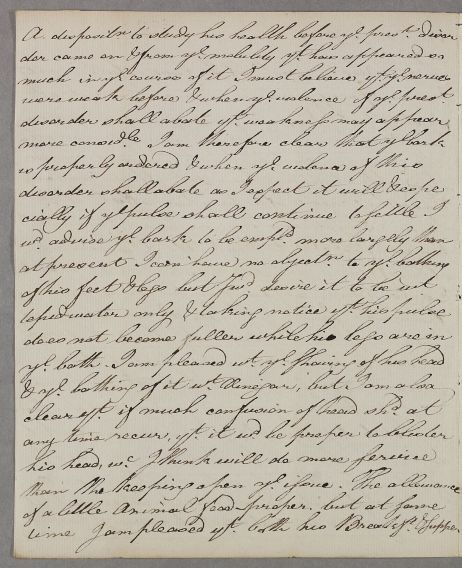 A disposition. to study his health before ye. prest. disor
der came on & from ye. mobility yt. has appeared so
much in ye. course of it I must believe yt. ye. nerves
were weak before & when ye. violence of ye. prest.
disorder shall abate yt. weakness may appear
more considble. I am therefore clear that ye. bark
is properly ordered & when ye. violence of this
disorder shall abate as I expect it will & espe
cially if ye. pulse shall continue to settle I
wd. advise ye. bark to be empld. more largely than
at present I can have no objectn. to ye. bathing
of his feet & legs but shd. desire it to be wt.
tepid water only & taking notice yt. his pulse
does not become fuller while his legs are in
ye. bath. I am pleased wt. ye. shaving of his head
& ye. bathing of it wt. Vinegar, but I am also
clear yt. if much confusion of head shd. at
any time recur, yt. it wd. be proper to blister
his head, wc. I think will do more service
than the keeping open ye. issue. The allowance
of a little Animal food proper, but at same
time I am pleased yt. both his Breakft. & Supper